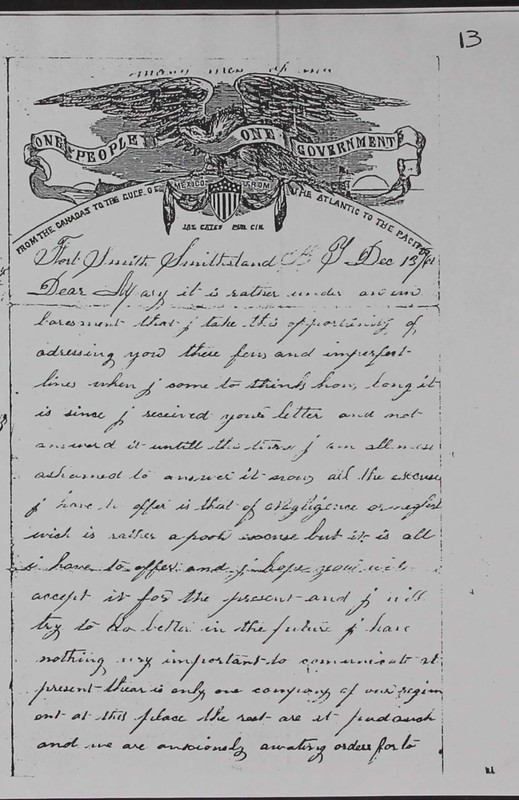 13
many men of
ONE PEOPLE ONE GOVERNMENT
FROM THE CANADAS TO THE GULF OF MEXICO FROM THE ATLANTIC TO THE PACIFIC
JAS. GATES PUB. CIN.
Fort Smith Smithsland K Y Dec 13/61
Dear Mary it is rather under an im
baresment that j take this opportunity of
adressing you these few and imperfect
lines when j come to think how long it
is since j received your letter and not
answerd it untill this time j am all most
ashamed to answer it now all the excuse
j have to offer is that of negligence or neglect
wich is rather a pooh excuse but it is all
i have to offer and j hope you will
accept it for the present and j will
try to do better in the future j have
nothing very important to comunicate at
present thear is only one company of our regim
ent at this place the rest are at paducah
and we are anxiously awating orders for to